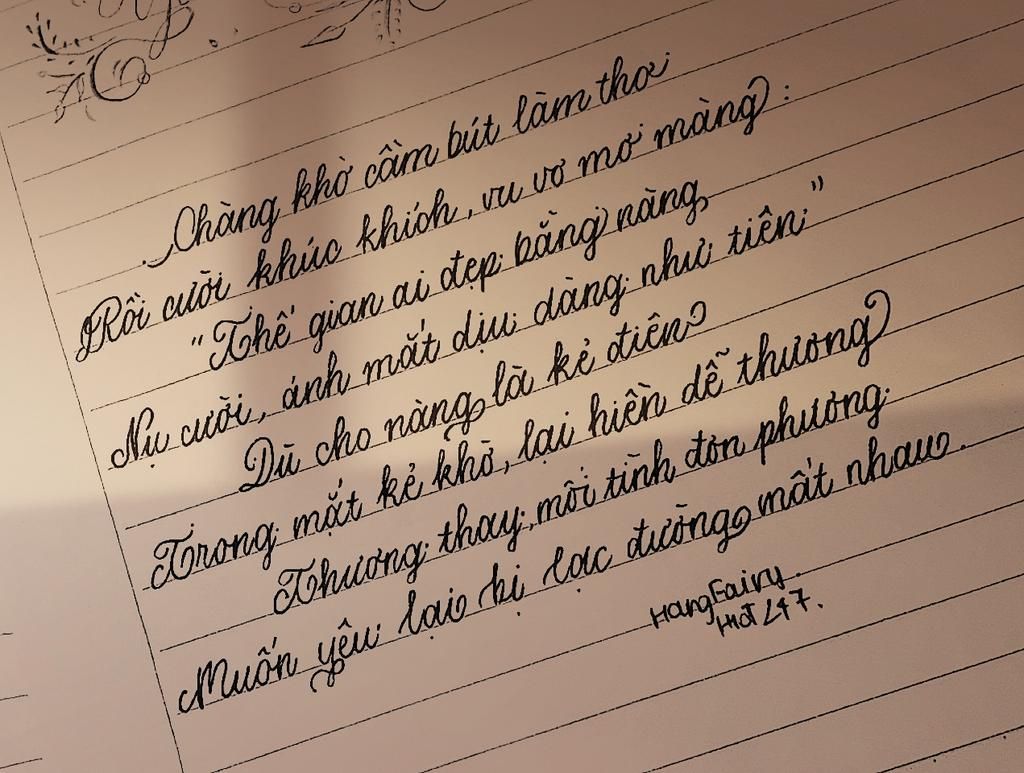 Chàng khờ cầm bút làm thơ
Rồi cười khúc khích, vu vơ mơ màng :
"Thế gian ai đẹp bằng nàng
Nụ cười, ánh mắt dịu dàng như tiên"
Dù cho nàng là kẻ điên
Trong mắt kẻ khờ, lại hiền dễ thương
Thương thay, mối tình đơn phương
Muốn yêu lại bị lạc đường mất nhau.
HangFairy.